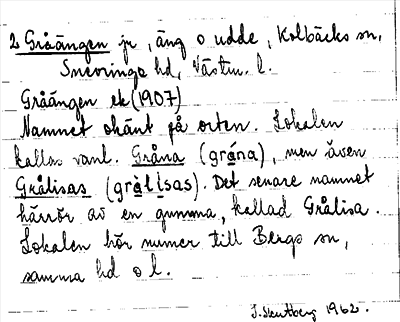 2 Gråängen ju, äng o udde, Kolbäcks sn,
Snevringe hd, Västm. l.
Gråängen ek (1907)
Namnet okänt på orten. Lokalen
kallas vanl. Gråna (grána), men även
Grålisas (gràlisas). Det senare namnet
härrör av en gumma, kallad Grålisa.
Lokalen hör numer till Bergs sn,
samma hd o l.
1962.